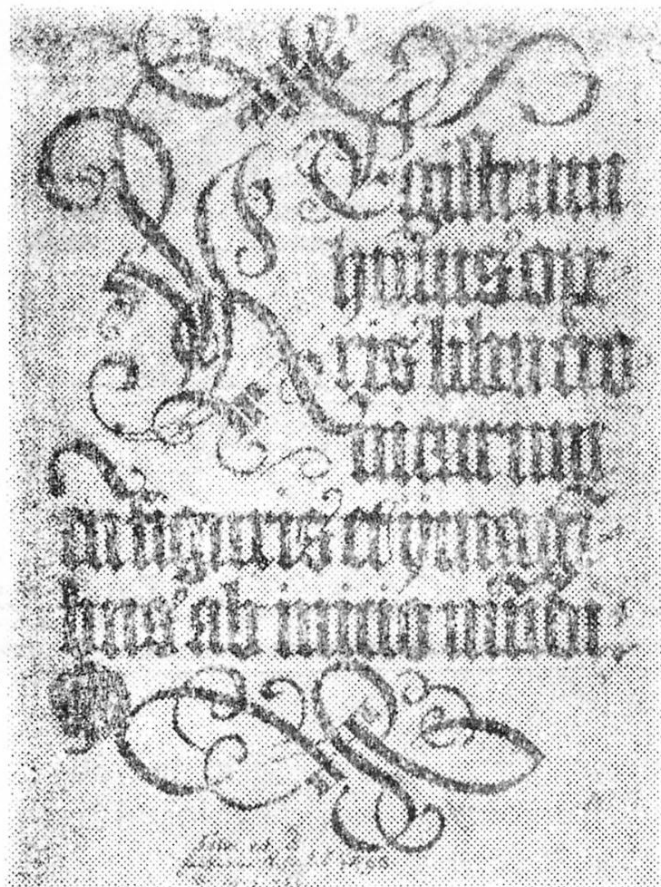 REgistrum
huius ope
ris libri cro
nicarum
cū figuris et ymagī
bus ab inicio mūdi